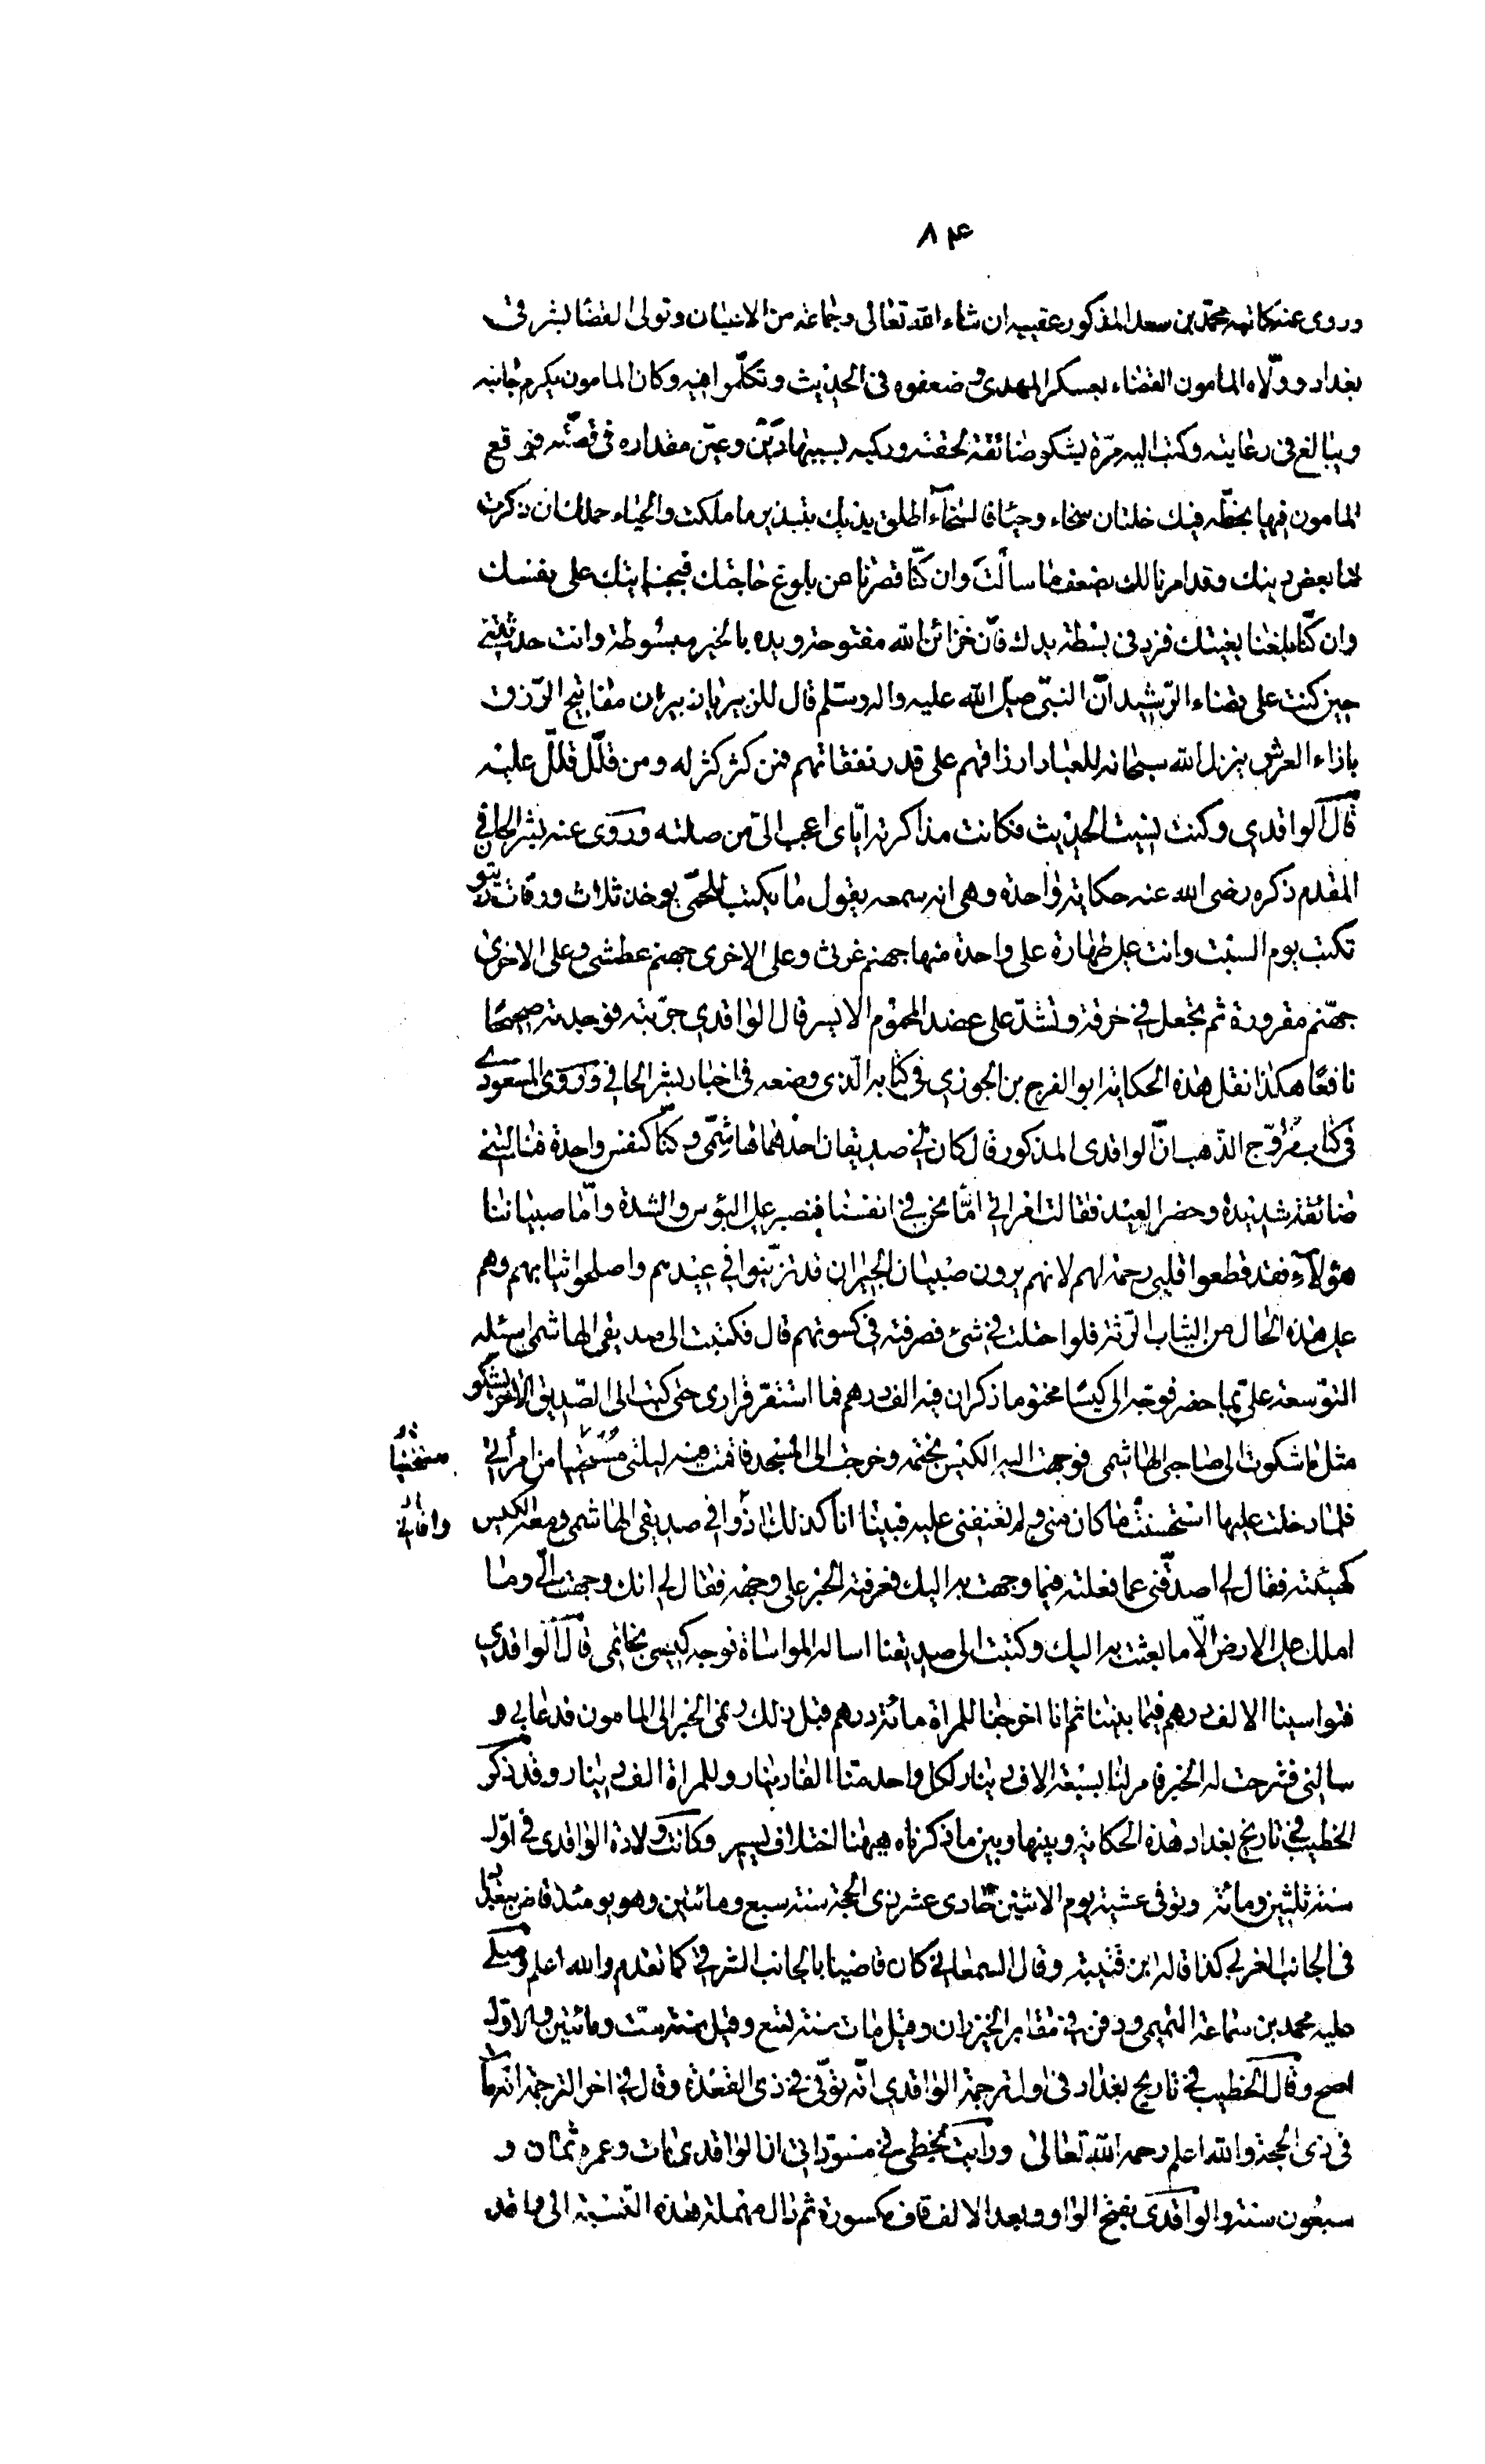 ٨۴
وروى عنه كاتبه محمد بن سعد المذكور عقيبه ان شاء الله تعالى وجماعة من الاعيان وتولى القضا بشرقى
بغداد وولّاه المامون القضاء بعسكر المهدى وضعفوه فى الحديث وتكلّموا فيه وكان المامون يكرم جانبه
ويبالغ فى رعايته وكتب اليه مرّة يشكو ضائقة لحقته وركبه بسببها دين وعيّن مقداره فى قصّته فوقع
المامون فيها بخطّه فيك خلتان سخاء وحيا فالسخاء اطلق يديك بتبذير ما ملكت والحياء حملك ان ذكرت
لنا بعض دينك وقد امرنا لك بضعف ما سألت وان كنّا قصرنا عن بلوغ حاجتك فبجنايتك على نفسك
وان كنّا بلغنا بغيتك فزد فى بسطة يدك فانّ خزائن الله مفتوحة ويده بالخير مبسوطة وانت حدثتنى
حين كنت على قضاء الرّشيد انّ النبىّ صلى الله عليه واله وسلم قال للزبير يا زبير ان مفاتيح الرّزق
بازاء العرش ينزل الله سبحانه للعباد ارزاقهم على قدر نفقاتهم فمن كثر كثر له ومن قلّل قلّل عليه
قال الواقدى وكنت نسيت الحديث فكانت مذاكرته ايّاى اعجب الىّ من صلته وروى عنه بشر الحافى
المقدم ذكره رضى الله عنه حكاية واحدة وهى انه سمعه يقول ما يكتب للحمّى يوخذ ثلاث ورقات زيتون
تكتب يوم السبت وانت على طهارة على واحدة منها جهنم غرثى وعلى الاخرى جهنم عطشى وعلى الاخرى
جهنّم مقرورة ثم تجعل فى خرقة وتشدّ على عضد المحموم الايسر قال الواقدى جرّبته فوجدته صحيحًا
نافعًا هكذا نقل هذه الحكاية ابو الفرج بن الجوزى فى كتابه الّذى وضعه فى اخبار بشر الحافى وروى المسعودى
فى كتاب مروّج الذّهب انّ الواقدى المذكور قال كان لى صديقان احدهما هاشمّى وكنّا كنفس واحدة فنالتنى
ضائقة شديدة وحضر العيد فقالت امراتى امّا نحن فى انفسنا فنصبر على البؤس والشدة وامّا صبياننا
هؤلاء فقد قطعوا قلبى رحمة لهم لانهم يرون صبيان الجيران قد تزيّنوا فى عيدهم واصلحوا ثيابهم وهم
على هذه الحال من الثياب الرّثة فلو احتلت فى شئ فصرفته فى كسوتهم قال فكتبت الى صديقى الهاشمى اسئله
التوسعة علىّ بما حضر فوجّه الى كيسًا مختوما ذكر ان فيه الف درهم فما استقرّ قرارى حتى كتب الى الصّديق الاخر يشكو
مثل ما شكوت الى صاحبى الهاشمى فوجهت اليه الكيس بختمه وخرجت الى المسجد فاقمت فيه ليلتى مستحييا من امرأتى
مستحييا
فلما دخلت عليها استحسنت ما كان منى ولم تعنفنى عليه فبينا انا كذلك اذ وافى صديقى الهاشمى ومعه الكيس
وافانى
كهيئته فقال لى اصدقّنى عما فعلته فيما وجهت به اليك فعرفته الخبر على وجهه فقال لى انك وجهت الىّ وما
املك على الارض الّا ما بعثت به اليك وكتبت الى صديقنا اساله المواساة فوجه كيسى بخاتمى قال الواقدى
فتواسينا الالف درهم فيما بيننا ثم انا اخرجنا للمراة مائة درهم قبل ذلك ونمى الخبر الى المامون فدعانى و
سالنى فشرحت له الخبر فامر لنا بسبعة الاف دينار لكل واحد منّا الفا دينار وللمراة الف دينار وقد ذكر
الخطيب فى تاريخ بغداد هذه الحكاية وبينها وبين ما ذكرناه هيهنا اختلاف يسير وكانت ولادة الواقدى فى اوّل
سنة ثلثين ومائة وتوفى عشية يوم الاثنين حادى عشر ذى الحجة سنة سبع ومائتين وهو يومئذ قاض ببغداد
فى الجانب الغربى كذا قاله ابن قتيبة وقال السمعانى كان قاضيا بالجانب الشرقى كما تقدم والله اعلم وصلى
عليه محمد بن سماعة التميمى ودفن فى مقابر الخيزران وقيل مات سنة تسع وقيل سنة ست ومائتين والاوّل
اصح وقال الخطيب فى تاريخ بغداد فى اول ترجمة الواقدى انّه توفّى فى ذى القعدة وقال فى اخر الترجمة انه مات
فى ذى الحجة والله اعلم رحمه الله تعالى ورايت بخطى فى مسوّداتى ان الواقدى مات وعمره ثمان و
سبعون سنة والواقدى بفتح الواو وبعد الالف قاف مكسورة ثم دال مهملة هذه النسبة الى واقد